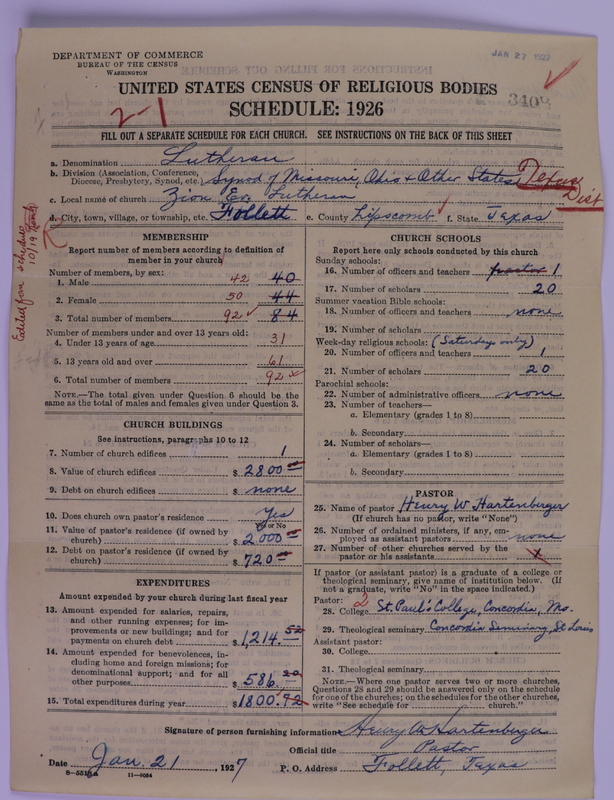 DEPARTMENT OF COMMERCE
BUREAU OF THE CENSUS
WASHINGTON
JAN 27 1927
UNITED STATES CENSUS OF RELIGIOUS BODIES
SCHEDULE: 1926
3408
2-1
FILL OUT A SEPARATE SCHEDULE FOR EACH CHURCH. SEE INSTRUCTIONS ON THE BACK OF THIS SHEET
a. Denomination Lutheran
b. Division (Association, Conference, Diocese, Presbytery, Synod, etc.) Synod of Missouri, Ohio & Other States Texas Dist
c. Local name of church Zion Ev. Lutheran
d. City, town, village, or township, etc. Follett e. County Lipscomb f. State Texas
Edited from schedule 10/19
MEMBERSHIP
Report number of members according to definition of
member in your church
Number of members, by sex:
1. Male 42 40
2. Female 50 44
3. Total number of members 92 84
Number of members under and over 13 years old:
4. Under 13 years of age 31
5. 13 years old and over 61
6. Total number of members 92
NOTE.—The total given under Question 6 should be
same as the total of males and females given under Question 3.
CHURCH BUILDINGS
See instructions, paragraphs 10 to 12
7. Number of church edifices 1
8. Value of church edifices $ 2800
9. Debt on church edifices $ none
10. Does church own pastor's residence Yes
Yes or No
11. Value of pastor's residence (if owned by
church) $ 2000
12. Debt on pastor's residence (if owned by
church) $ 720
EXPENDITURES
Amount expended by your church during last fiscal year
13. Amount expended for salaries, repairs,
and other running expenses; for im-
provements or new buildings; and for
payments on church debt $ 1,214.52
14. Amount expended for benevolences, in-
cluding home and foreign missions; for
denominational support; and for all
other purposes $ 586.20
15. Total expenditures during year $ 1800.72
CHURCH SCHOOLS
Report here only schools conducted by this church
Sunday schools:
16. Number of officers and teachers pastor 1
17. Number of scholars 20
Summer vacation Bible schools:
18. Number of officers and teachers none
19. Number of scholars
Week-day religious schools: (Saturday only)
20. Number of officers and teachers 1
21. Number of scholars 20
Parochial schools:
22. Number of administrative officers none
23. Number of teachers—
a. Elementary (grades 1 to 8)
b. Secondary
24. Number of scholars—
a. Elementary (grades 1 to 8)
b. Secondary
PASTOR
25. Name of pastor Henry W Hartenberger
(If church has no pastor, write "None")
26. Number of ordained ministers, if any, em-
ployed as assistant pastors none
27. Number of other churches served by the
pastor or his assistants x
If pastor (or assistant pastor) is a graduate of a college or
theological seminary, give name of institution below. (If
not a graduate, write "No" in the space indicated.)
Pastor: 2
28. College St. Paul's College, Concordia, Mo.
29. Theological seminary Concordia Seminary, St Louis
Assistant pastor:
30. College
31. Theological seminary
NOTE.—Where one pastor serves two or more churches,
Questions 28 and 29 should be answered only on the schedule
for one of the churches; on the schedules for the other churches,
write "See schedule for church."
Signature of person furnishing information Henry W Hartenberger
Official title Pastor
Date Jan. 21, 1927 P. O. Address Follett, Texas
11—9054